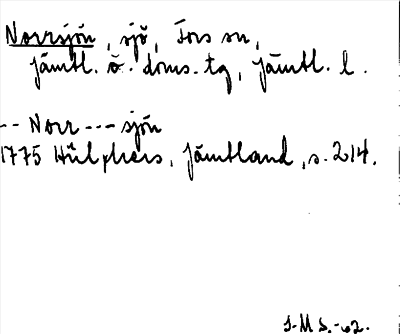 Norrsjön, sjö, Fors sn,
Jämtl. ö. doms. tg, Jämtl. l.
-- Norr --- sjön
1775 Hülphers, Jämtland, s. 214.
I.M.S.-62.